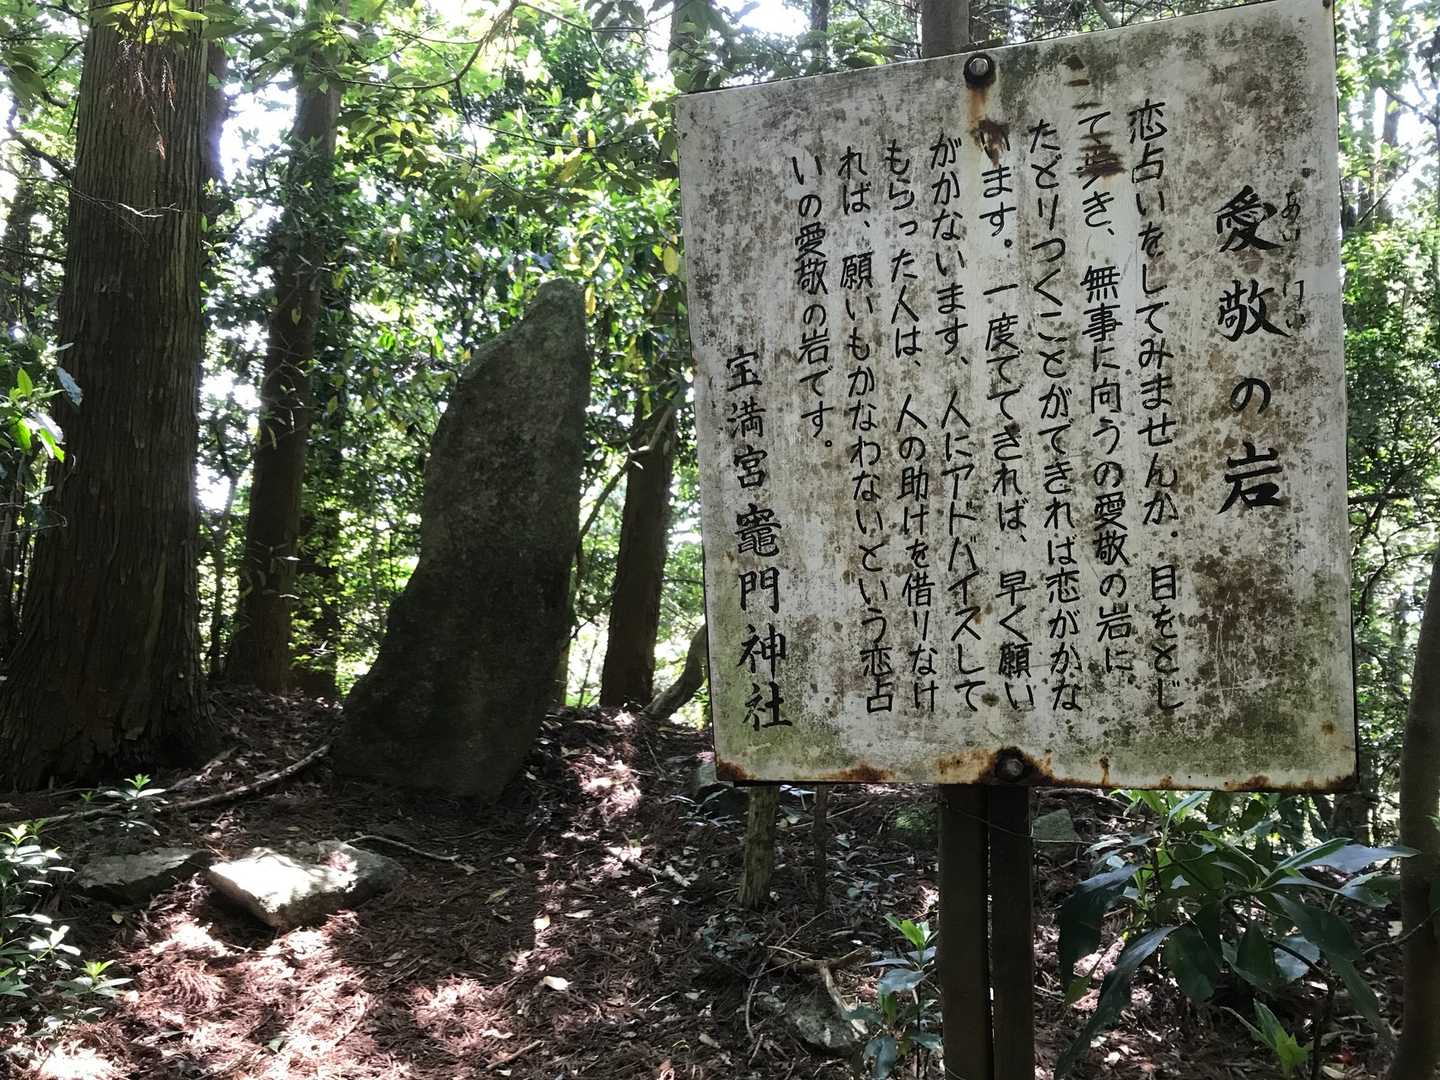 愛敬の岩
あいけい
恋占いをしてみませんか．目をとじ
て歩き、無事に向うの愛敬の岩に
たどりつくことができれば恋がかな
います．一度でてきれば、早く願い
がかないます、人にアドバイスして
もらった人は、人の助けを借りなけ
れば、願いもかなわないという恋占
いの愛敬の岩です。
宝満宮竈門神社